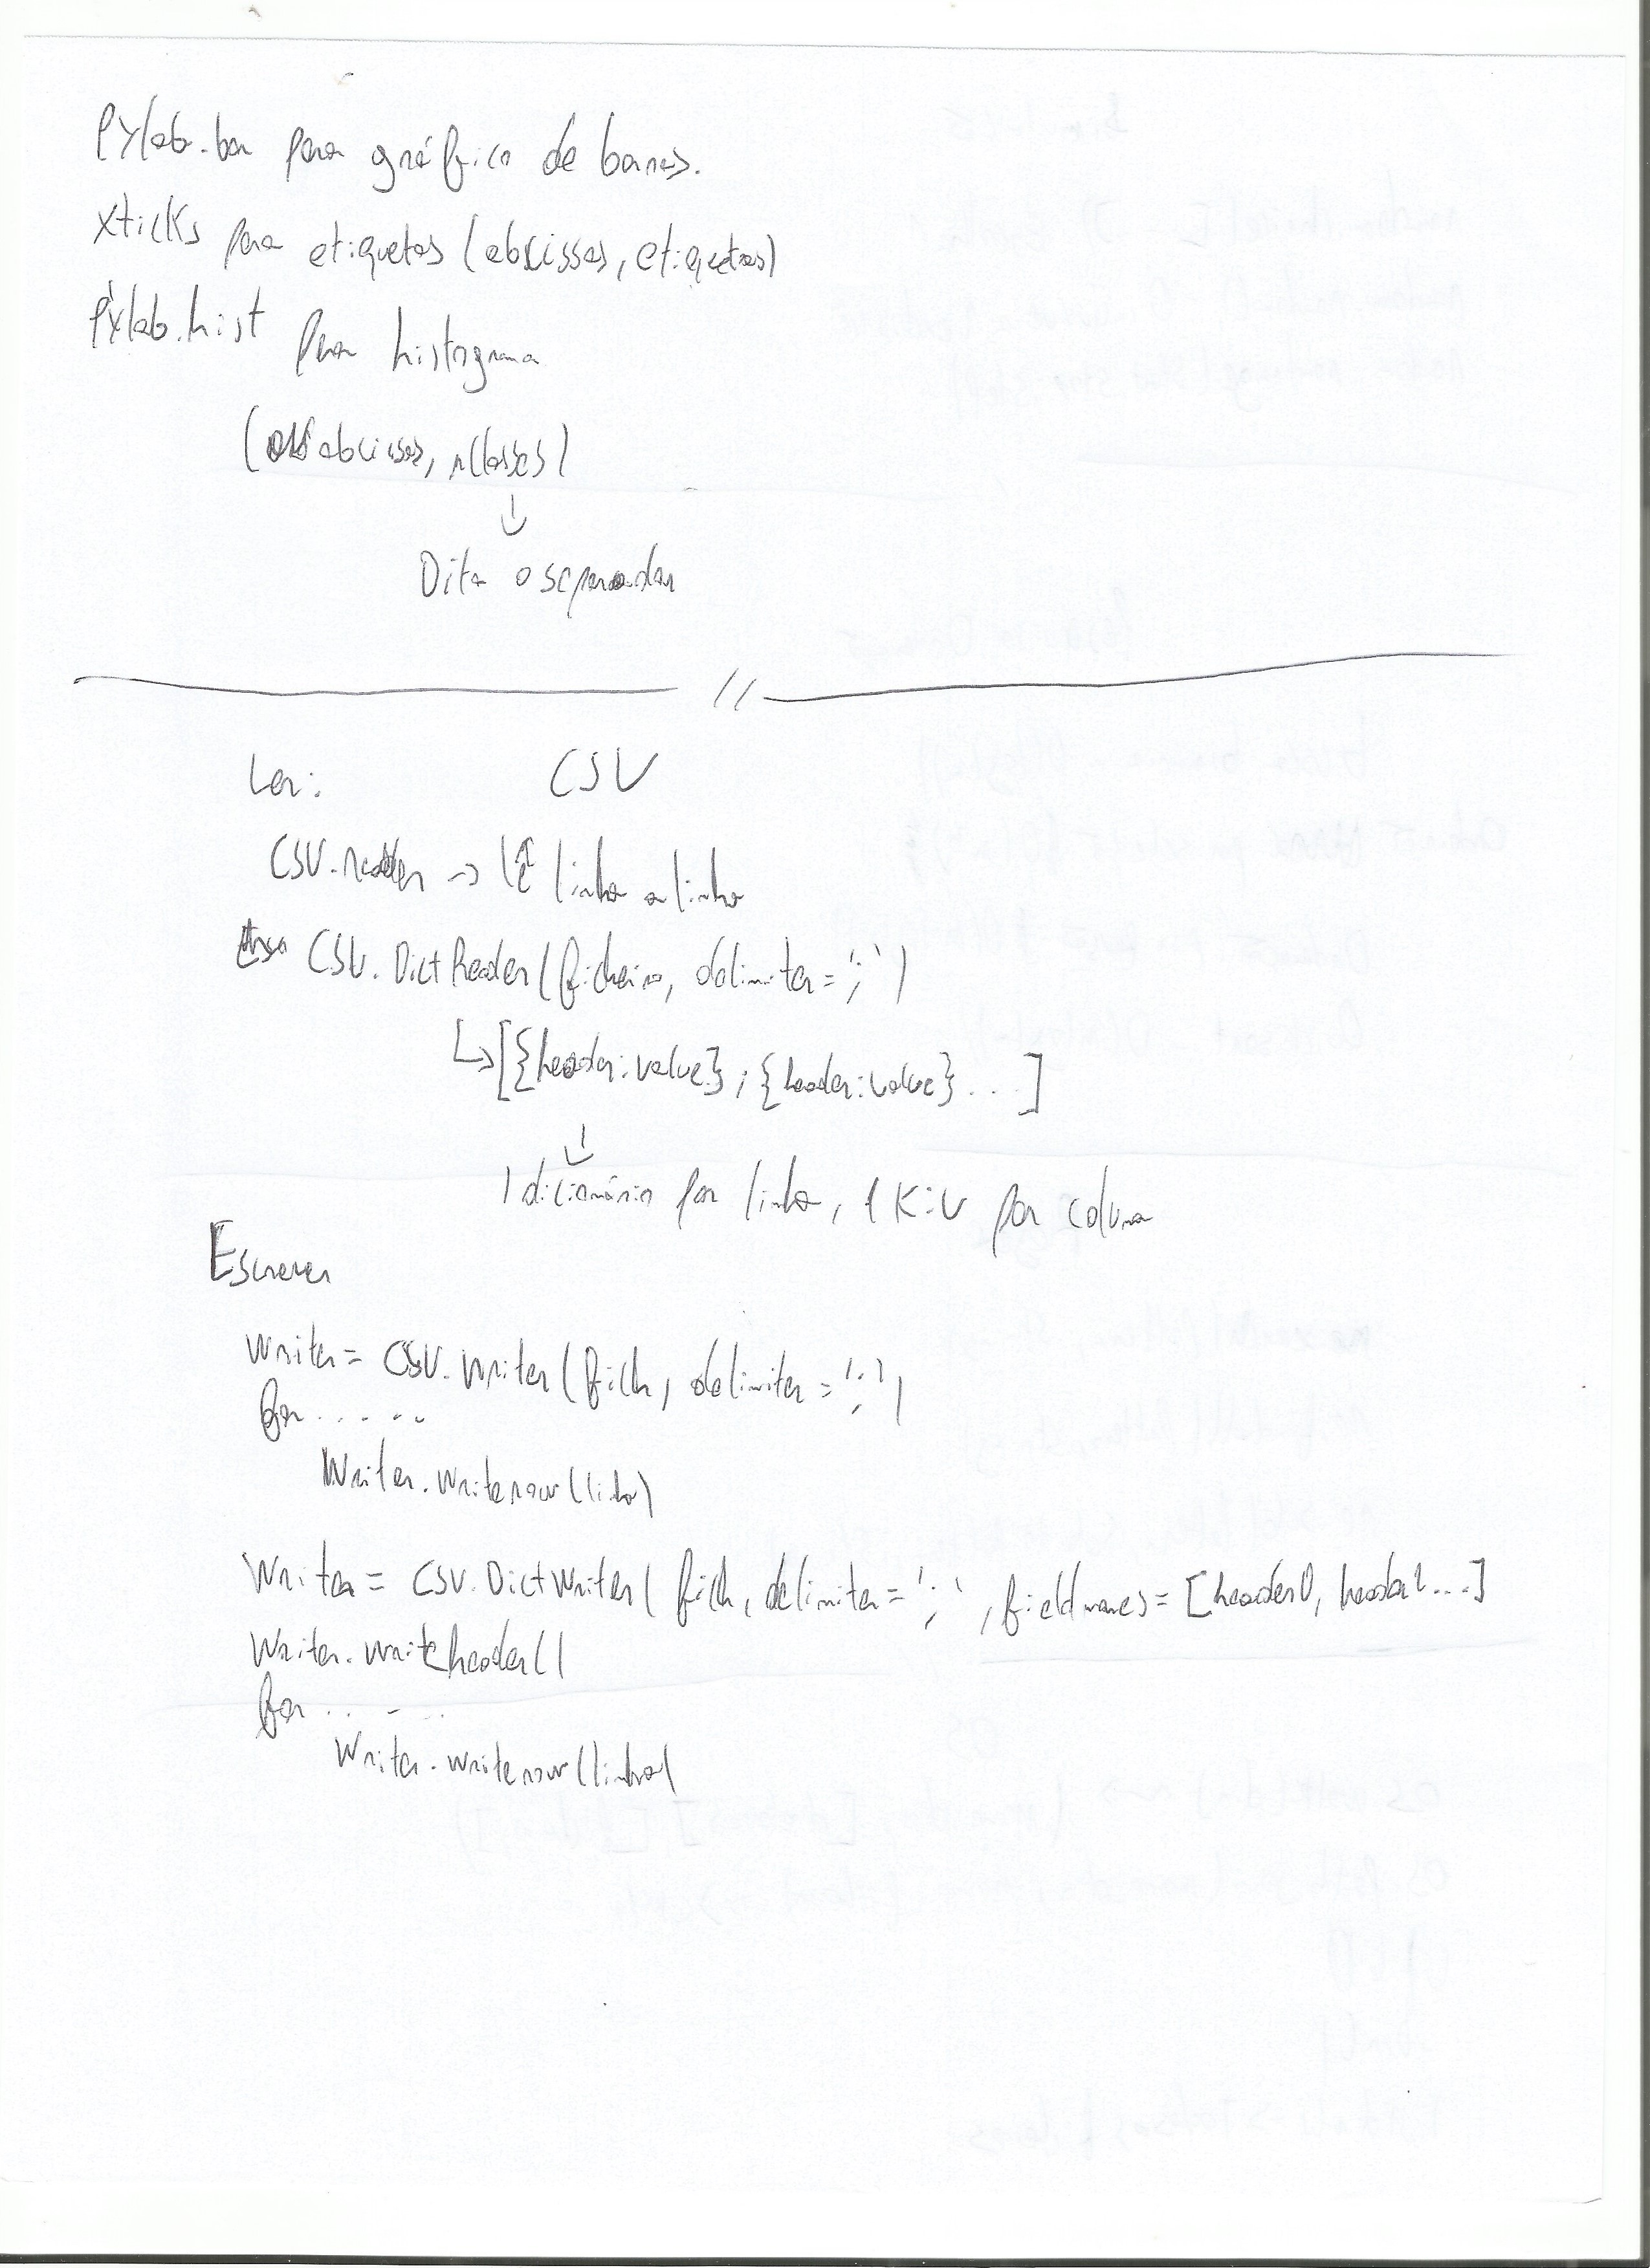 Pylab.bar para gráfico de barras.
xticks para etiquetas (abcissas, etiquetas)
Pylab.hist para histograma
(abcissas, nclasses)
↓
Dita o separador
//
Ler: CSV
CSV.reader -> lê linha a linha
CSV.DictReader(ficheiro, delimiter=';')
↳[{header:value}; {header:value}...]
↓
1 dicionário por linha, 1 K:V por coluna
Escrever
Writer= CSV.Writer(fich, delimiter=';')
for ......
Writer.writerow(linha)
Writer= CSV.DictWriter(fich, delimiter=';', fieldnames=[header0, header1...]
Writer.writeheader()
for ......
Writer.writerow(linha)